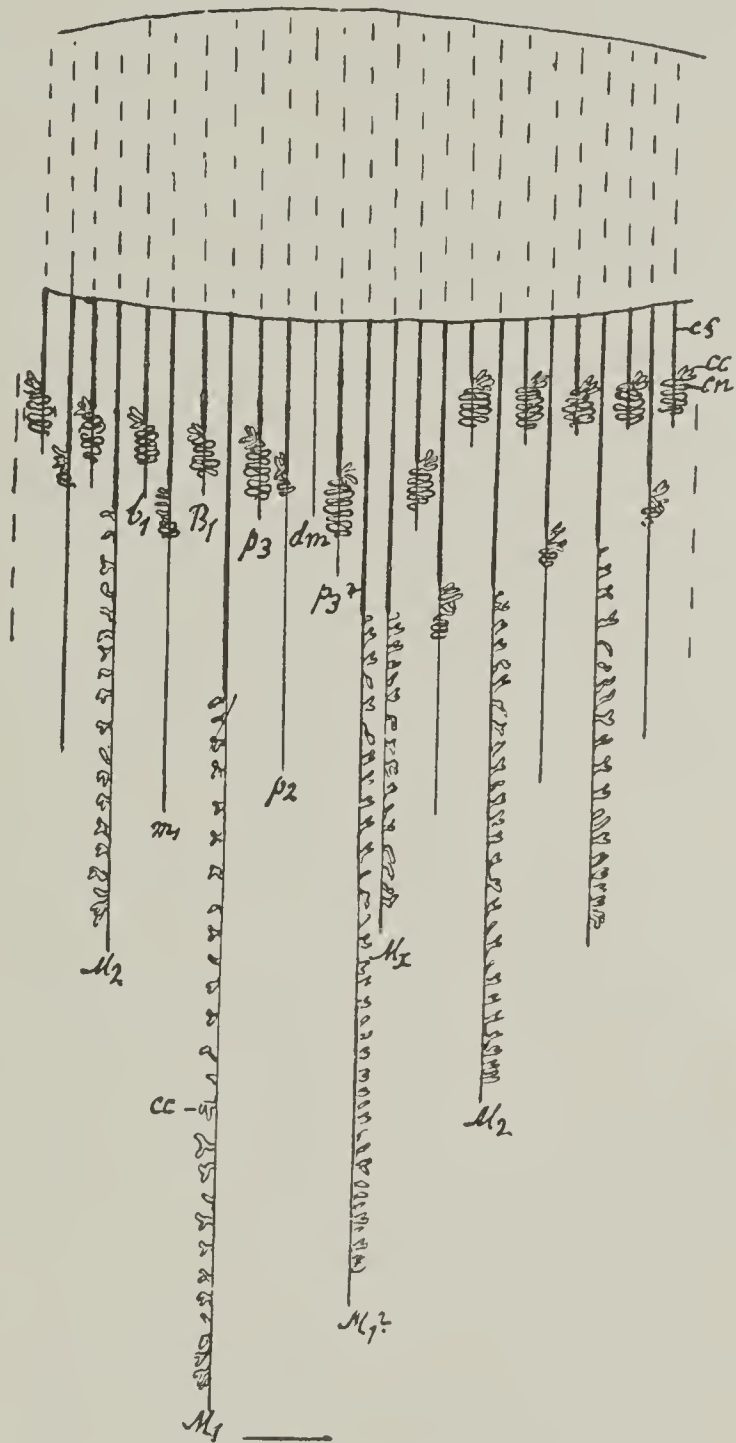 cs
cc
cn
b1
B1
p3
dm
p3?
m1
p2
M2
MI
cc
M2
M1?
M1